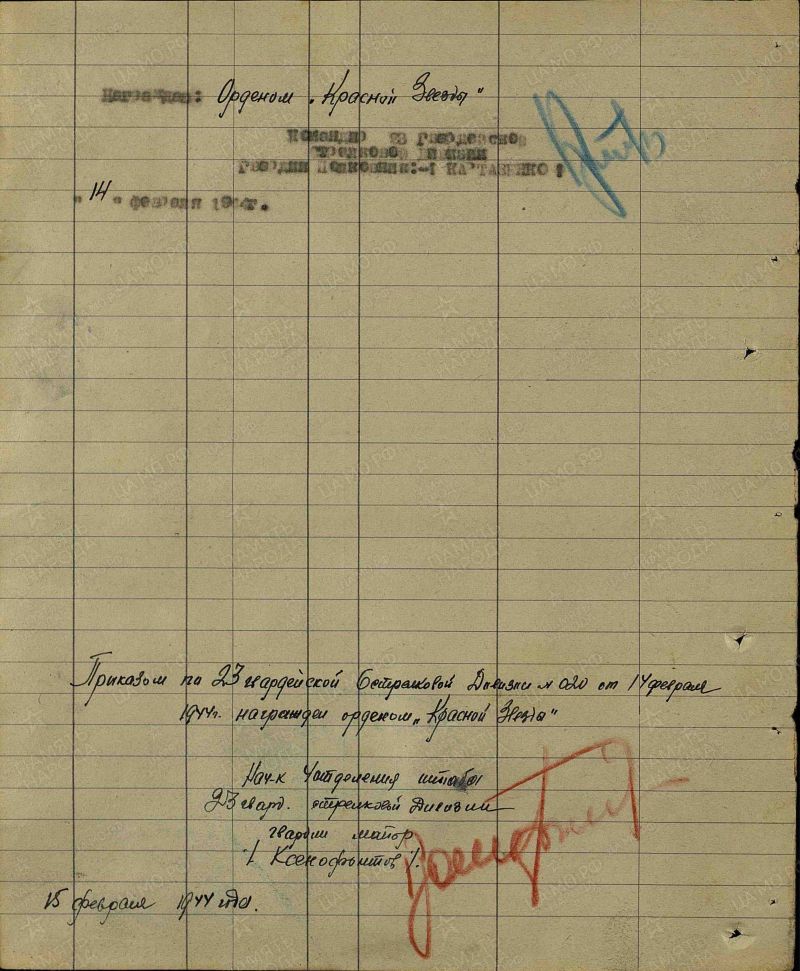 Награжден: Орденом "Красной Звезды"
Командир 23 Гвардейской
Стрелковой Дивизии
Гвардии Полковник:-/ КАРТАВЕНКО /
"14" февраля 1944г.
Приказом по 23 гвардейской стрелковой Дивизии № 020 от 14 февраля
1944г. награжден орденом "Красной Звезды"
Нач-к 4 отделения штаба
23 гвард. стрелковой Дивизии
гвардии майор
/ Ксенофонтов /.
15 февраля 1944 года.